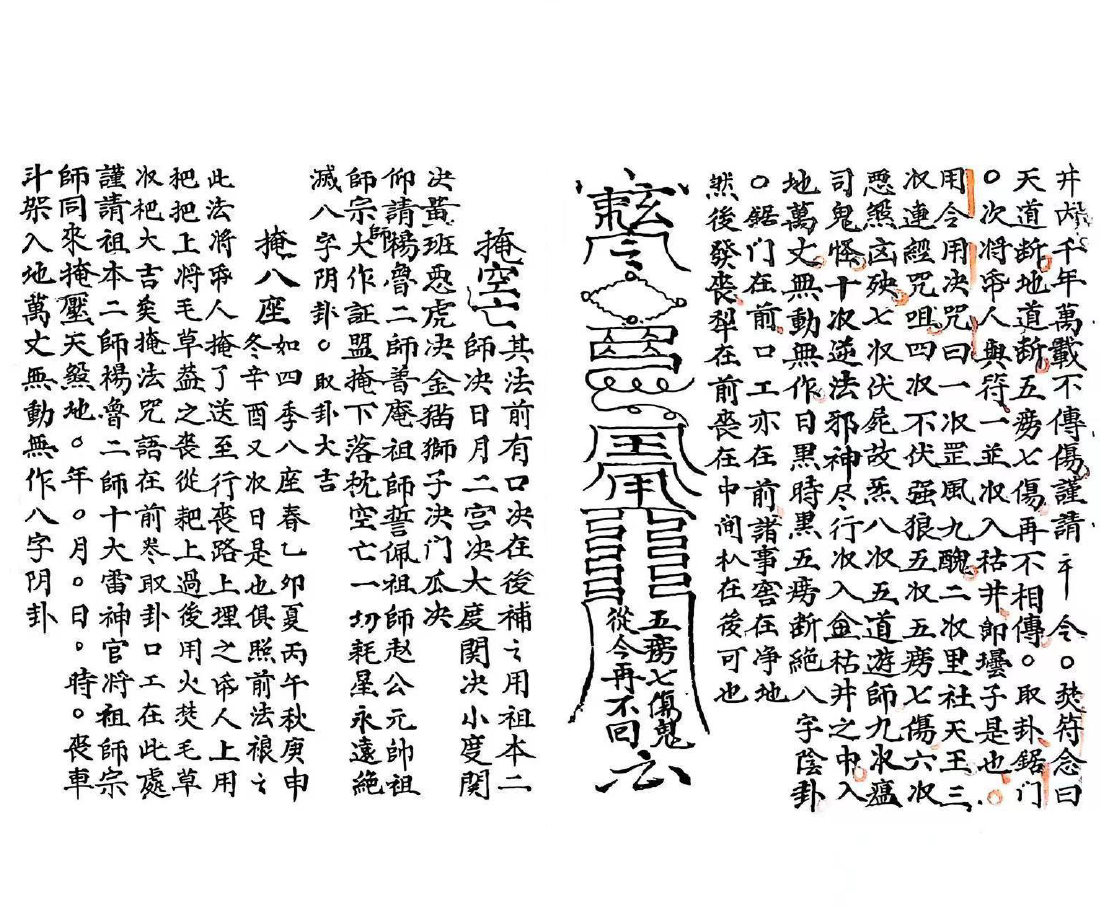 井内千年萬載不傳傷謹請 令○焚符念曰
天道断地道断五痨七傷再不相傳○取卦鋸门
○次将帋人與符一並収入祜井即壜子是也
用令用决咒曰一次罡風九醜二収里社天王三
収連經咒咀四収不伏强狼五収五痨七傷六収
悪煞凶殃七収伏屍故炁八収五道遊師九収瘟
司鬼怪十収逆法邪神尽行収入金祜井之中入
地萬丈無動無作日黒時黒五痨断絶八字陰卦
○鋸门在前口工亦在前諸事窖在净地
然後發丧犁在前丧在中间朳在後可也
五痨七傷鬼
從今再不回
掩空亡其法前有口决在後補之用祖本二
師决日月二宫决太度関决小度関
决黄班悪虎决金猫獅子决门瓜决
仰請楊魯二師普庵祖師誓佩祖師赵公元帥祖
師宗師大作証盟掩下落枕空亡一切耗星永遠絶
滅八字阴卦○取卦大吉
掩八座如四季八座春乙卯夏丙午秋庚申
冬辛酉又収日是也俱照前法裉之
此法将帋人掩了送至行丧路上埋之帋人上用
把把上将毛草葢之丧從耙上過後用火焚毛草
収杷大吉矣掩法咒語在前叁取卦口工在此處
謹請祖本二師楊魯二師十大雷神官将祖師宗
師同來掩壓天煞地○年○月○日○時○丧車
斗架入地萬丈無動無作八字阴卦